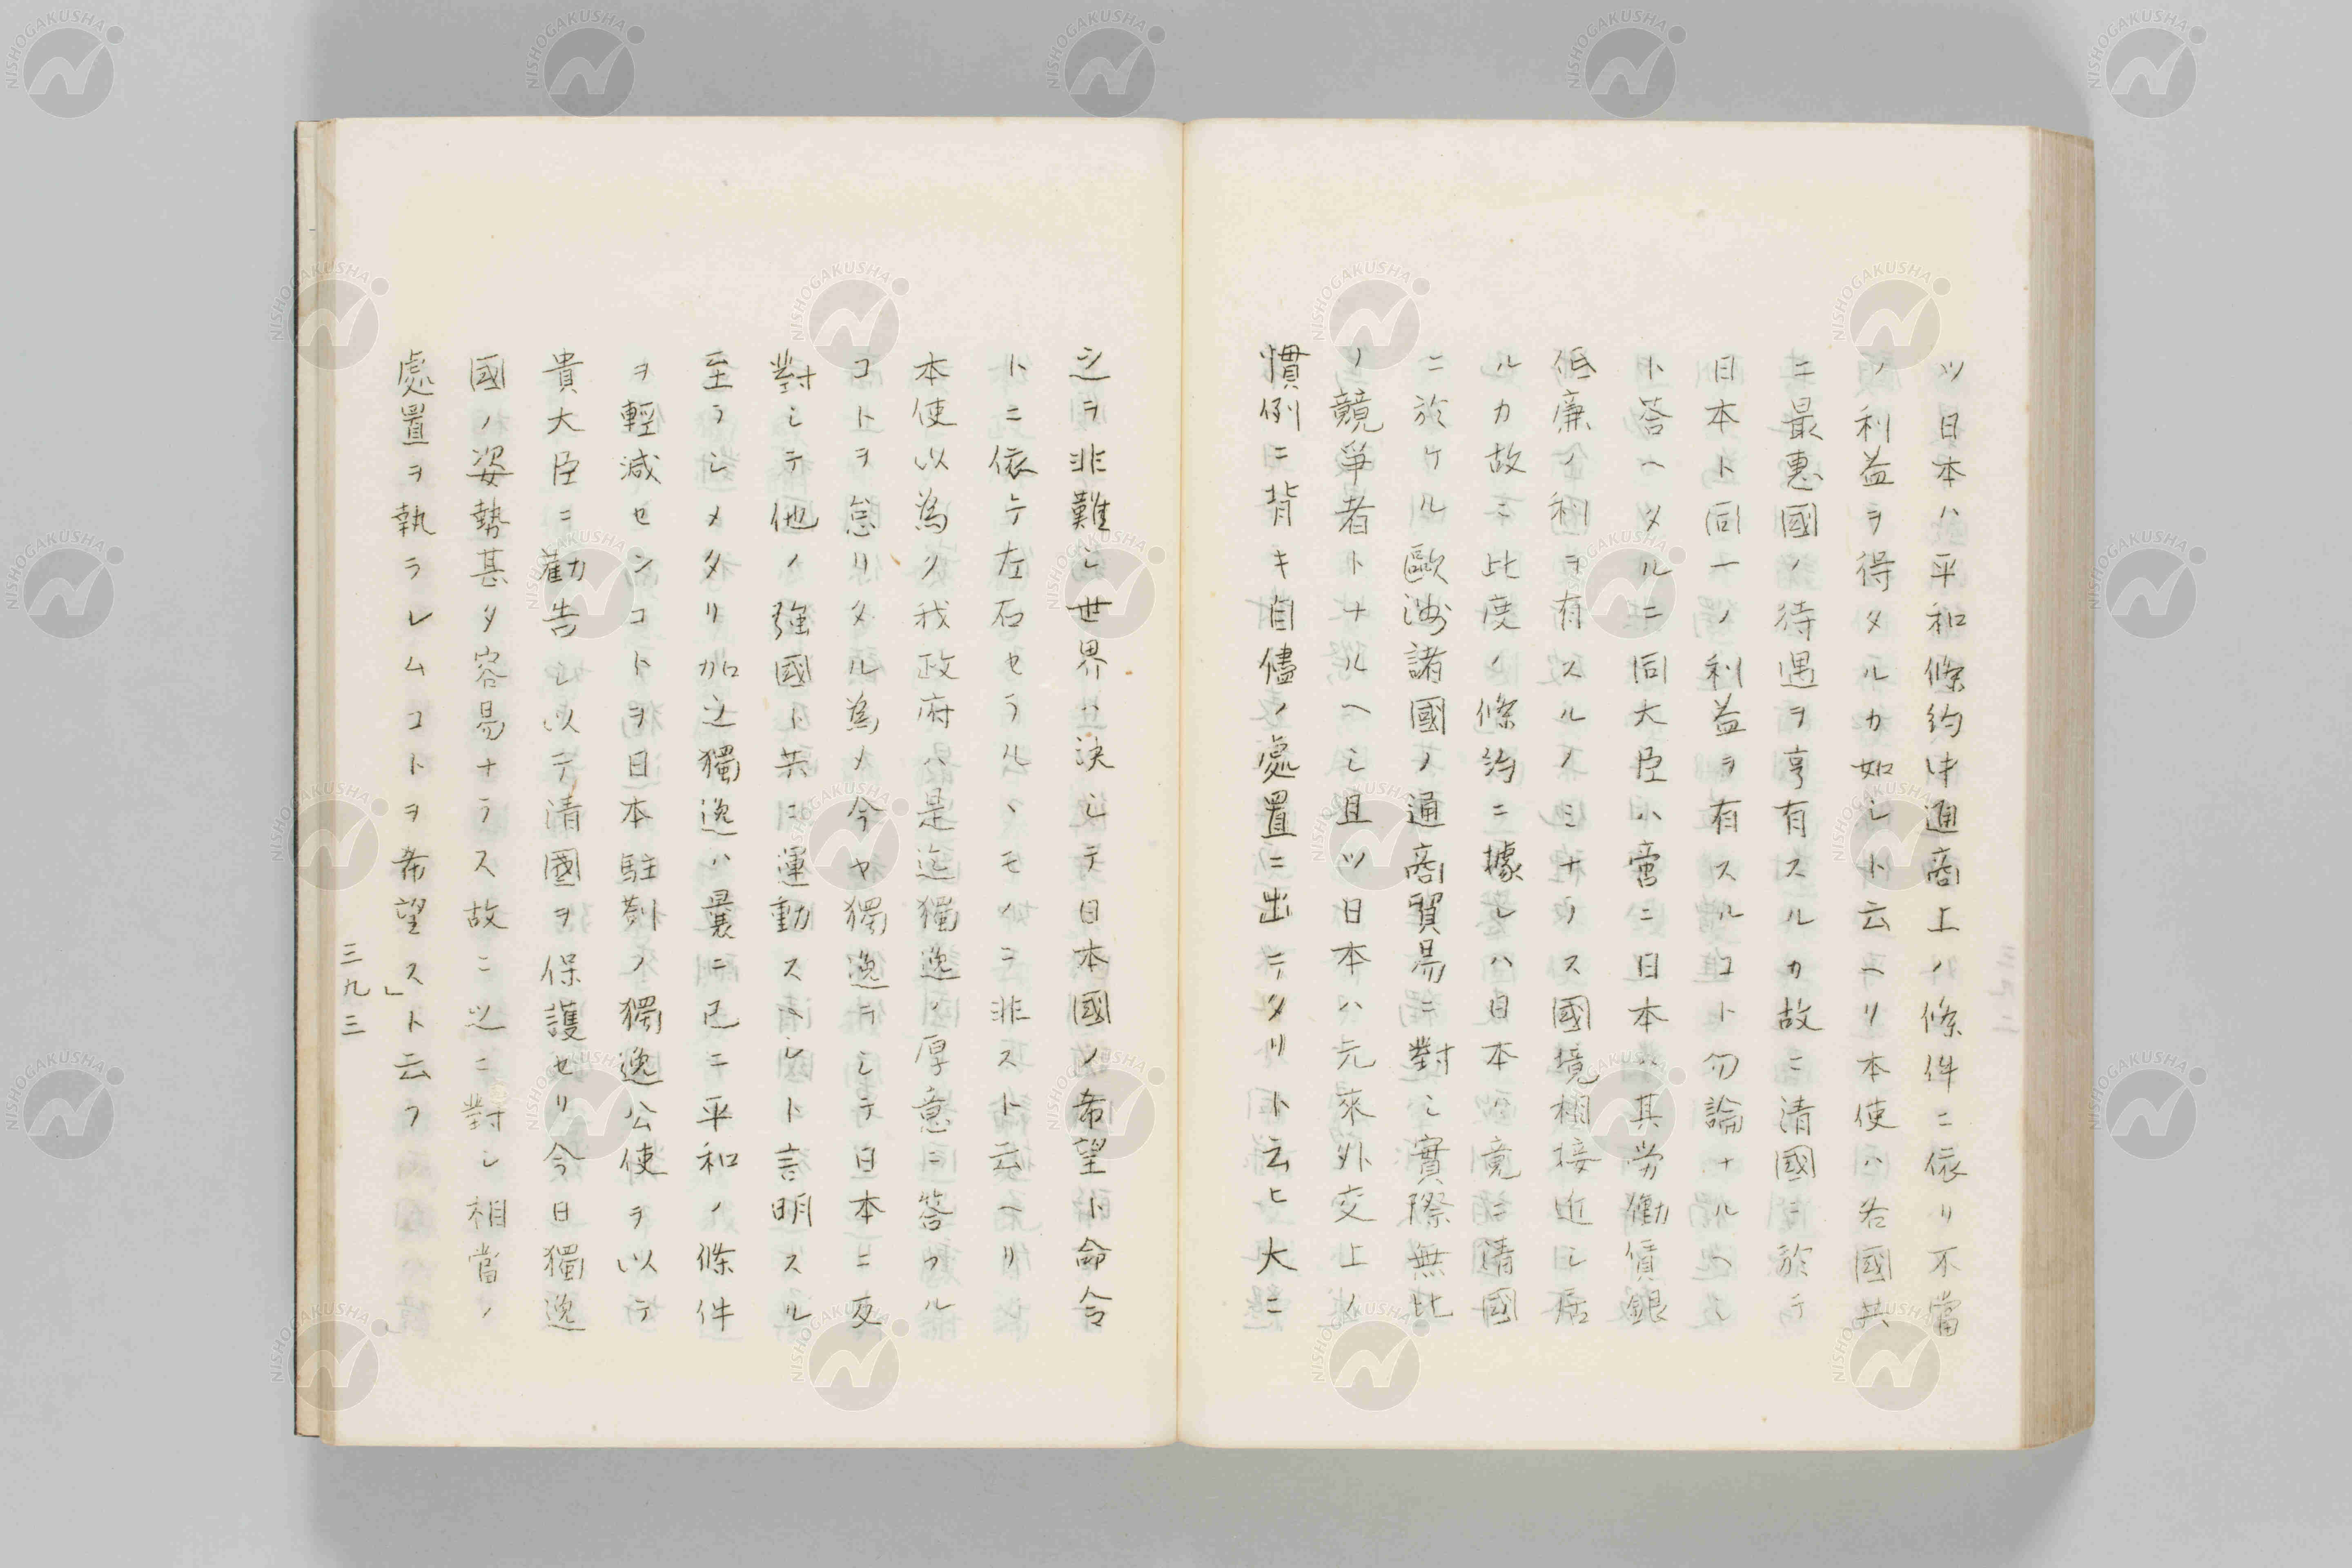 ツ日本ハ平和條約中通商上ノ條件ニ依リ不當
ノ利益ヲ得タルカ如シト云ヘリ本使ハ各國共
ニ最惠國ノ待遇ヲ享有スルカ故ニ清國ニ於テ
日本ト同一ノ利益ヲ有スルコト勿論ナルヘシ
ト答ヘタルニ同大臣ハ啻ニ日本ハ其労働債銀
低廉ノ利ヲ有スルノミナラス國境相接近シ居
ルカ故ニ此度ノ條約ニ據レハ日本ハ竟ニ清國
ニ於ケル歐洲諸國ノ通商貿易ニ對シ實際無比
ノ競爭者トナルヘシ且ツ日本ハ元來外交上ノ
慣例ニ背キ自儘ノ處置ニ出テタリト云ヒ大ニ
之ヲ非難シ世界ハ決シテ日本國ノ希望ト命令
トニ依テ左右セラルヽモノニ非ストト云ヘリ
本使以為ク我政府ハ是迄獨逸ノ厚意ニ答フル
コトヲ怠リタル為メ今ヤ獨逸ヲシテ日本ニ反
對シテ他ノ強國ト共ニ運動スヘシト言明スル
至ラシメタリ加之獨逸ハ曩ニ已ニ平和ノ條件
ヲ輕減センコトヲ日本駐剳ノ獨逸公使ヲ以テ
貴大臣ニ勸告シ以テ清國ヲ保護セリ今日獨逸
國ノ姿勢甚タ容易ナラス故ニ之ニ對シ相當ノ
處置ヲ執ラレムコトヲ希望ス」ト云フ
三九三
NISHOGAKUSHA